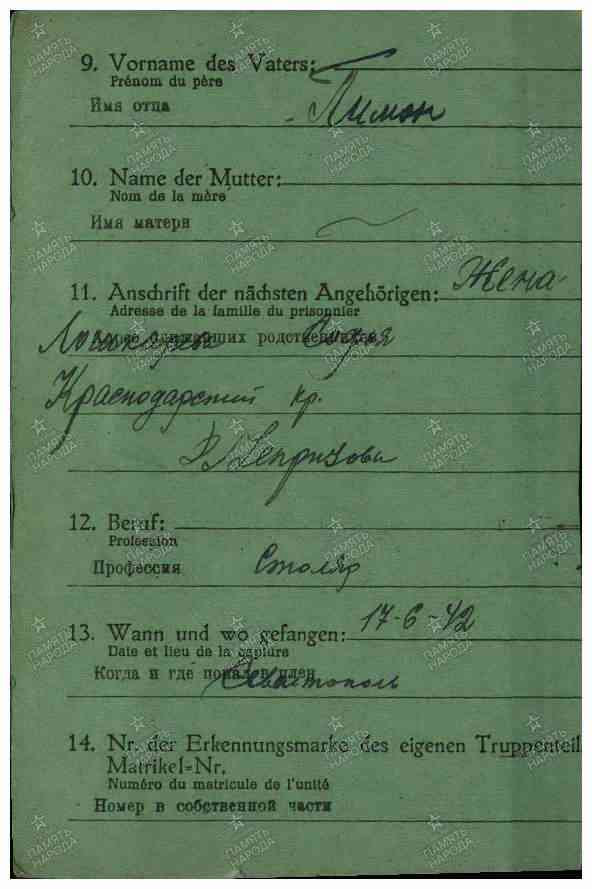 9. Vorname des Vaters:
Prénom du père
Имя отца
Лимон
10. Name der Mutter:
Nom de la mère
Имя матери
11. Anschrift der nächsten Angehörigen: Жена
Adresse de la famille du prisonnier
ближайших родственников
София
Краснодарский кр.
12. Beruf:
Profession
Профессия Столяр
13. Wann und wo gefangen: 17-6-42
Date et lieu de la capture
Когда и где попал в плен
Севастополь
14. Nr. der Erkennungsmarke des eigenen Truppenteil
Matrikel-Nr.
Numéro du matricule de l'unité
Номер в собственной части
ПАМЯТЬ НАРОДА